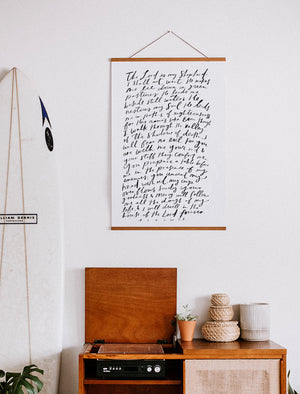 The Lord is my Shepherd
I shall not want. He makes
me lie down in green
pastures. He leads me
beside still waters. He
restores my soul. He leads
me in paths of righteousness
for His names sake. Even though
I walk through the valley
of the shadow of death, I
will fear no evil for you
are with me your rod &
your staff they comfort me.
You prepare a table before
me in the presence of my
enemies. You anoint my
head with oil my cup
overflows. Surely
goodness & mercy will follow
me all the days of my
life & I will dwell in the
house of the Lord forever.
PSALM 23
ILLIAM DENNIS